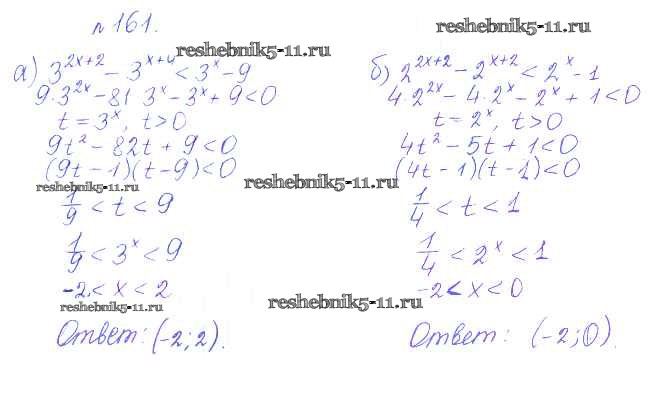 №161.
reshebnik5-11.ru
reshebnik5-11.ru
а) 3^{2x+2} - 3^{x+4} < 3^x - 9
9·3^{2x} - 81 3^x - 3^x + 9 < 0
t = 3^x, t > 0
9t² - 82t + 9 < 0
(9t - 1)(t - 9) < 0
reshebnik5-11.ru
1/9 < t < 9
1/9 < 3^x < 9
-2 < x < 2
reshebnik5-11.ru
Ответ: (-2; 2).
б) 2^{2x+2} - 2^{x+2} < 2^x - 1
4·2^{2x} - 4·2^x - 2^x + 1 < 0
t = 2^x, t > 0
4t² - 5t + 1 < 0
(4t - 1)(t - 1) < 0
reshebnik5-11.ru
1/4 < t < 1
1/4 < 2^x < 1
-2 < x < 0
reshebnik5-11.ru
Ответ: (-2; 0).